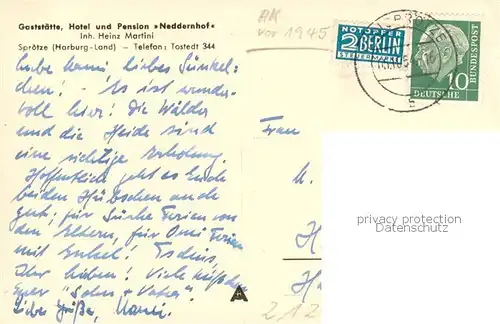 Gaststätte, Hotel und Pension »Neddernhof«
Inh. Heinz Martini
Sprötze (Harburg-Land) – Telefon: Tostedt 344
AK
vor 1945
NOTOPFER
2 BERLIN
STEUERMARKE
DEUTSCHE
BUNDESPOST
10
liebe Omi, liebes
chen! – Es ist wunder-
voll hier! Die Wälder
und die Heide sind
eine richtige Erholung.
Hoffentlich geht es Euch
beiden Hübschen auch
gut; für Ferien von
den Eltern, für Omi Ferien
mit Enkel! Tschüs,
Ihr Lieben! Viele
Euer "Sohn + Vater"
Liebe Grüße,
Frau
M.
H
H
privacy protection
Datenschutz
A
212